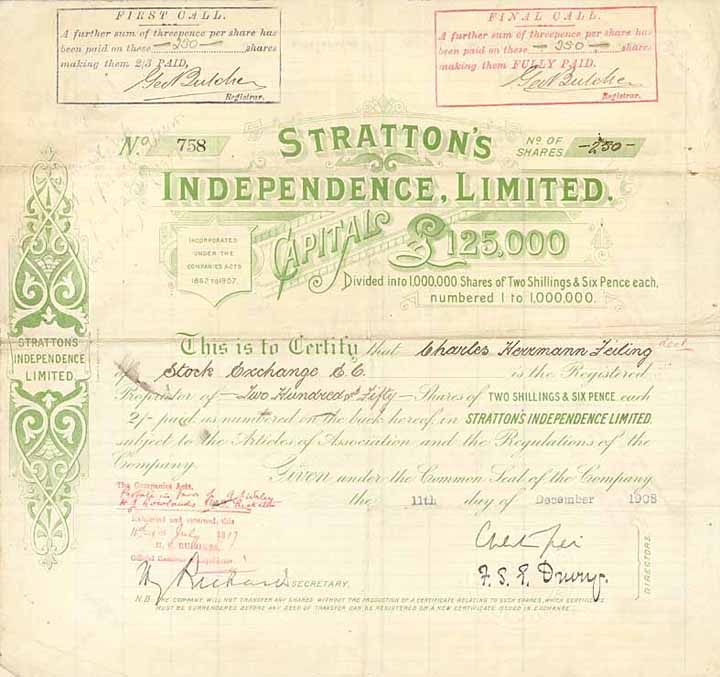 FIRST CALL.
A further sum of threepence per share has
been paid on these -250- shares
making them 2/3 PAID,
Geo Butcher
Registrar.
FINAL CALL.
A further sum of threepence per share has
been paid on these -250- shares
making them FULLY PAID.
Geo Butcher
Registrar.
No. 758
STRATTON'S
No OF SHARES -250-
INDEPENDENCE, LIMITED.
INCORPORATED
UNDER THE
COMPANIES ACTS
1862 TO 1907.
CAPITAL £125,000
Divided into 1,000,000 Shares of Two Shillings & Six Pence each,
numbered 1 to 1,000,000.
STRATTON'S
INDEPENDENCE
LIMITED.
This is to Certify that Charles Herrmann Feiling
of Stock Exchange E.C. is the Registered
Proprietor of -Two Hundred and Fifty- Shares of TWO SHILLINGS & SIX PENCE each
2/- paid as numbered on the back hereof in STRATTON'S INDEPENDENCE LIMITED,
subject to the Articles of Association and the Regulations of the
Company.
Given under the Common Seal of the Company
the 11th day of December 1908
The Companies Acts.
Probate in favor of
Exhibited and returned, this
of July
SECRETARY.
F. S. E. Drury.
DIRECTORS.
N.B. THE COMPANY WILL NOT TRANSFER ANY SHARES WITHOUT THE PRODUCTION OF A CERTIFICATE RELATING TO SUCH SHARES, WHICH CERTIFICATE
MUST BE SURRENDERED BEFORE ANY DEED OF TRANSFER CAN BE REGISTERED OR A NEW CERTIFICATE ISSUED IN EXCHANGE.